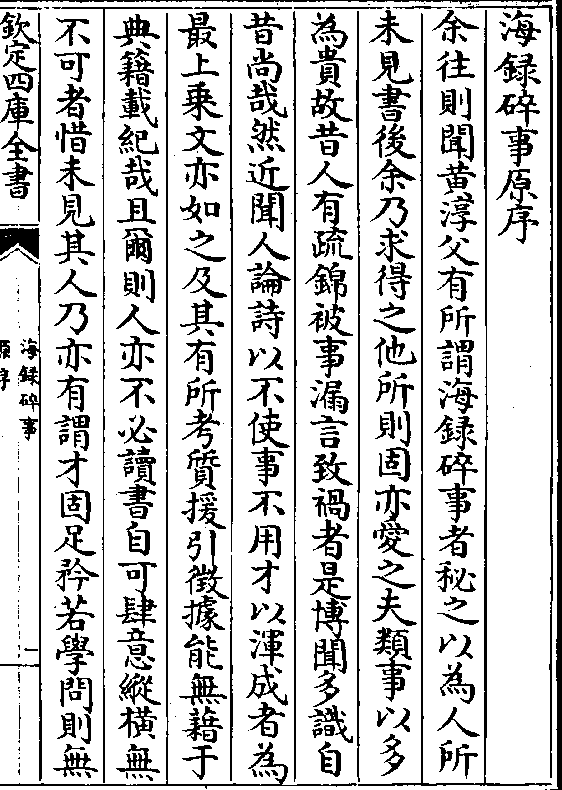 海録碎事原序
余往則聞黄淳父有所謂海録碎事者秘之以為人所
未見書後余乃求得之他所則固亦愛之夫類事以多
為貴故昔人有疏錦被事漏言致禍者是博聞多識自
昔尚哉然近聞人論詩以不使事不用才以渾成者為
最上乘文亦如之及其有所考質援引徵據能無藉于
典籍載紀哉且爾則人亦不必讀書自可肆意縱橫無
不可者惜未見其人乃亦有謂才固足矜若學問則無
欽定四庫全書
海録碎事
原序
一